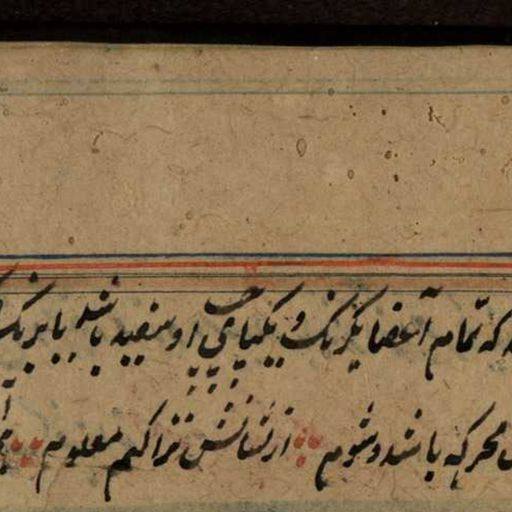 که تمام اعضا یکرنگ و یکپای چپ او سفید باشد یا برنگ
محرکه باشد و شوم از نشانش ترا کنم معلوم